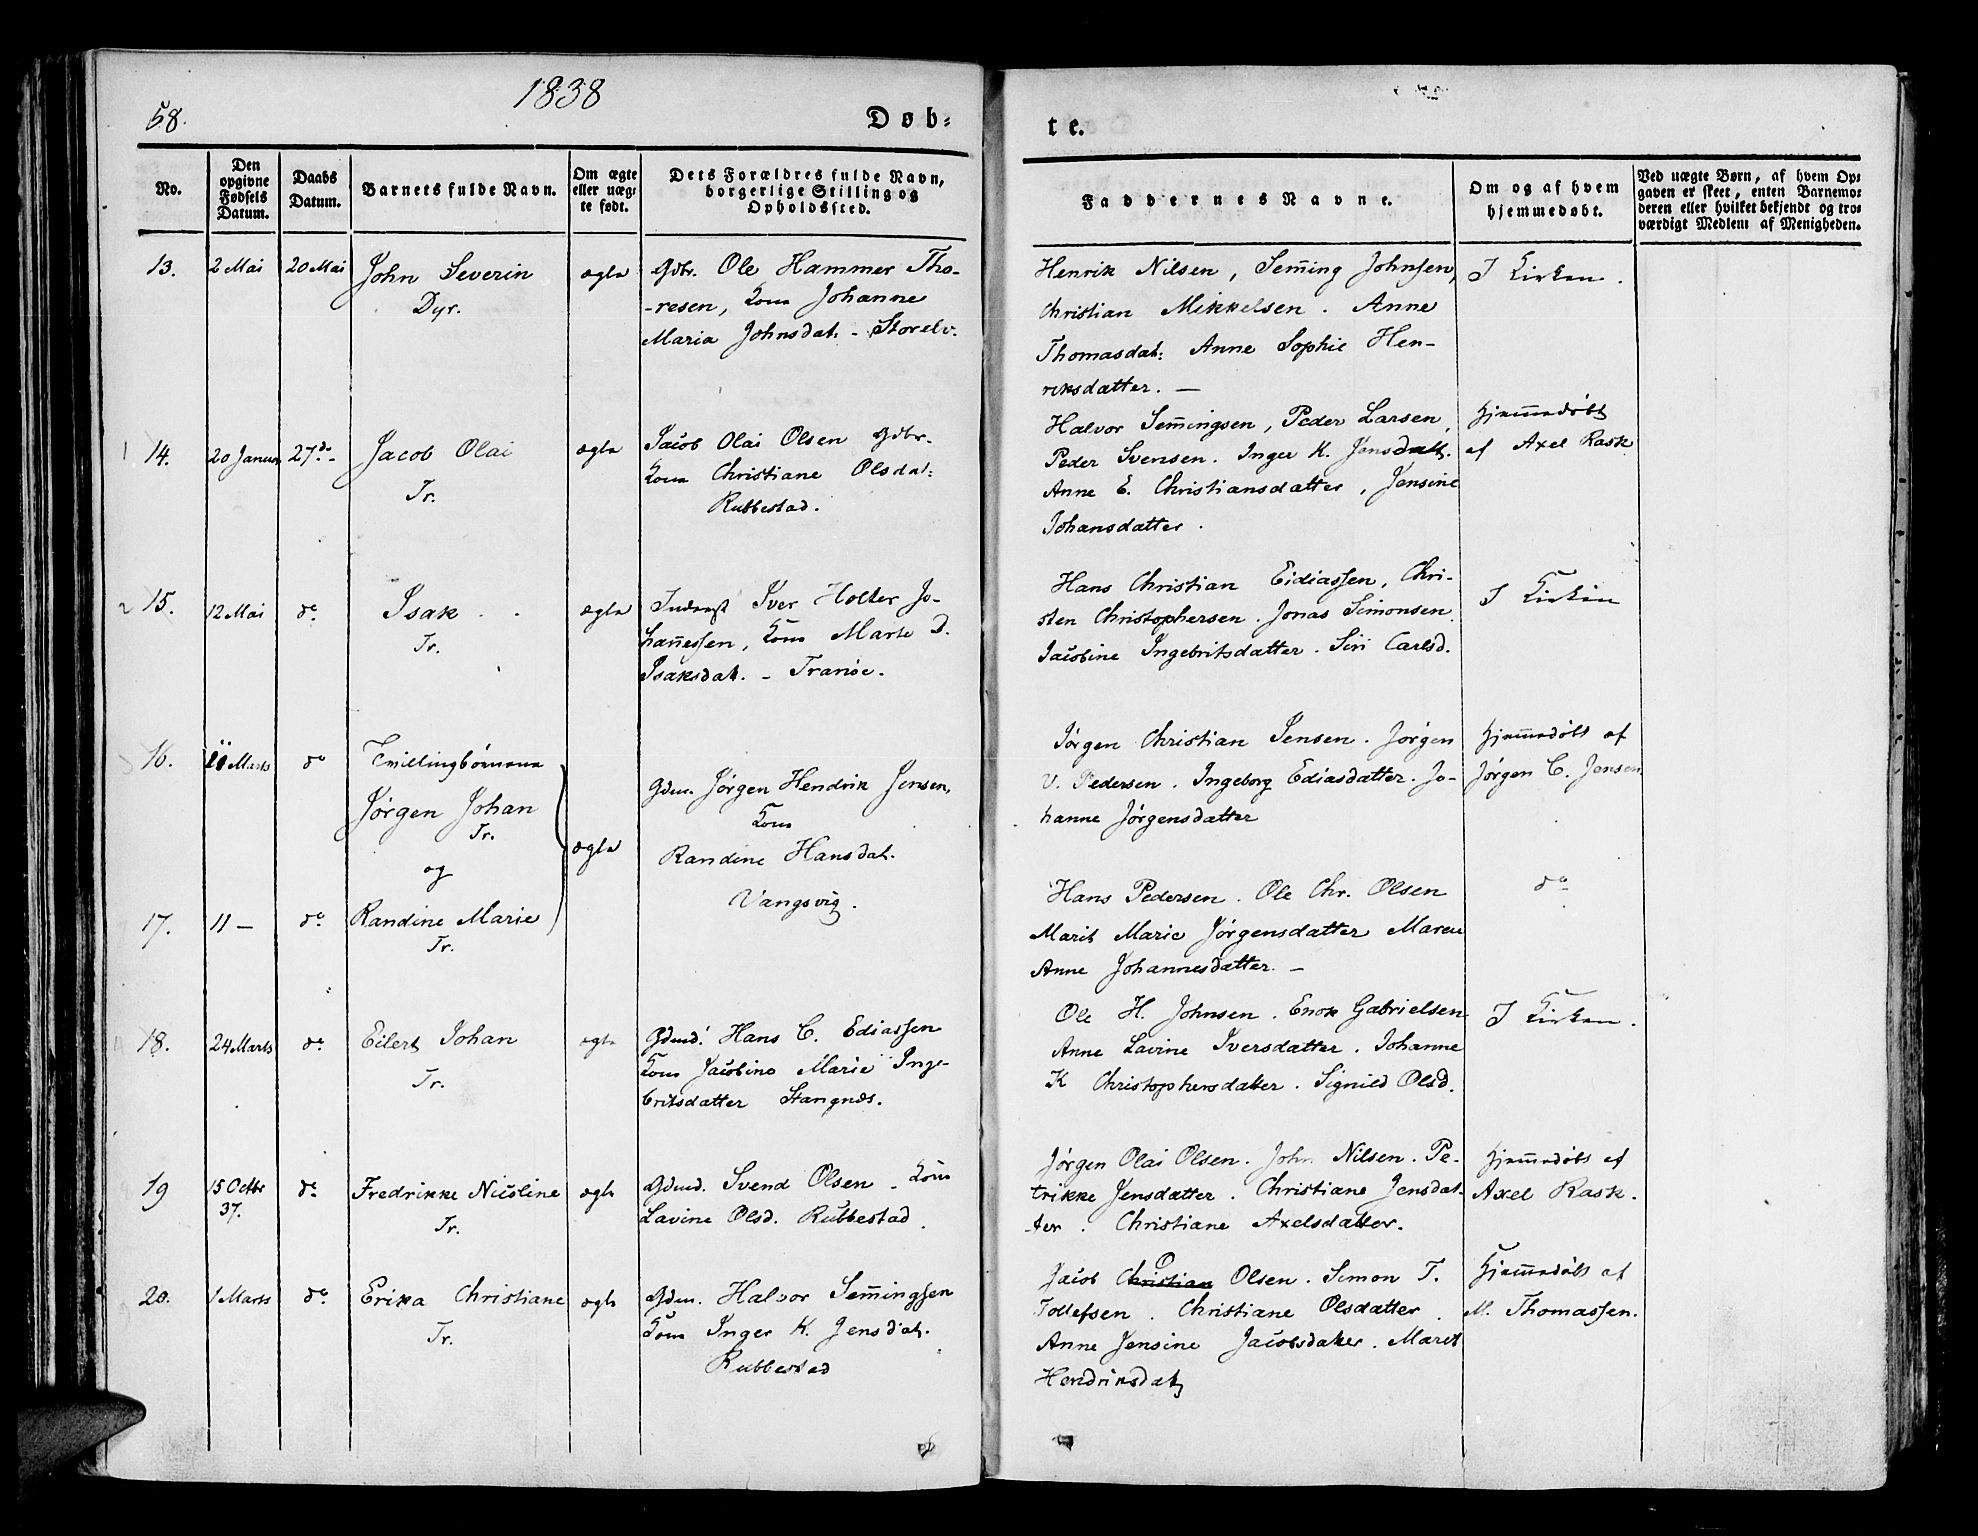 58.
1838
Døb-
te.
No.
Den opgivne Fødsels Datum.
Daabs Datum.
Barnets fulde Navn.
Om ægte eller uægte født.
Dets Forældres fulde Navn, borgerlige Stilling og Opholdssted.
Faddernes Navne.
Om og af hvem hjemmedøbt.
Ved uægte Børn, af hvem Opgaven er skeet, enten Barnemoderen eller hvilket bekjendt og troværdigt Medlem af Menigheden.
13.
2 Mai
20 Mai
John Severin
Dyr.
ægte
Gdbr. Ole Hammer Tho-
-resen, Kone Johanne
Maria Johnsdat. - Storelv.
Henrik Nilsen, Sem̅ing Johnsen,
Christian Mikkelsen. Anne
Thomasdat: Anne Sophie Hen-
riksdatter. —
I Kirken.
1
14.
20 Januar
27 do
Jacob Olai
Tr.
ægte
Jacob Olai Olsen Gdbr.
Kone Christiane Olsdat:
Rubbestad.
Halvor Sem̅ingsen, Peder Larsen,
Peder Svensen. Inger K. Jensdatt.
Anne E. Christiansdatter, Jensine
Johansdatter.
Hjem̅edøbt
af Axel Rask
2
15.
12 Mai
do
Isak
Tr.
ægte
Inderst Iver Holter Jo-
han̅essen, Kone Marte D.
Isaksdat. - Tranøe.
Hans Christian Eidiassen, Chri-
sten Christophersen. Jonas Simonsen.
Jacobine Ingebritsdatter. Siri Carlsd.
I Kirken
16.
11 Marts
do
Tvillingbørnene
Jørgen Johan
Tr.
og
ægte
Gdm. Jørgen Hendrik Jensen,
Kone
Randine Hansdat.
Vangsvig.
Jørgen Christian Jensen. Jørgen
V. Pedersen. Ingeborg Ediasdatter. Jo-
hanne Jørgensdatter
Hjem̅edøbt af
Jørgen C. Jensen
17.
11 —
do
Randine Marie
Tr.
Hans Pedersen. Ole Chr. Olsen
Marit Marie Jørgensdatter Maren
Anne Johannesdatter. —
do
18.
24 Marts
do
Eilert Johan
Tr.
ægte
Gdmd. Hans C. Ediassen
Kone Jacobine Marie Inge-
britsdatter Stangnæs.
Ole H. Johnsen. Enok Gabrielsen
Anne Lavine Iversdatter. Johanne
K Christophersdatter. Signild Olsd.
I Kirken.
19
15 Octbr
37.
do
Fredrikke Nicoline
Tr.
ægte
Gdmd. Svend Olsen - Kone
Lavine Olsd. Rubbestad.
Jørgen Olai Olsen. John Nilsen. Pe-
trikke Jensdatter. Christiane Jensdat-
ter. Christiane Axelsdatter.
Hjem̅edøbt af
Axel Rask.
20.
1 Marts
do
Erika Christiane
Tr.
ægte
Gdm. Halvor Sem̅ingsen
Kone Inger K. Jensdat.
Rubbestad
Jacob Christian O Olsen. Simon T.
Tollefsen. Christiane Olsdatter.
Anne Jensine Jacobsdatter. Marit
Hendriksdat
Hjem̅edøbt af
M. Thomassen.